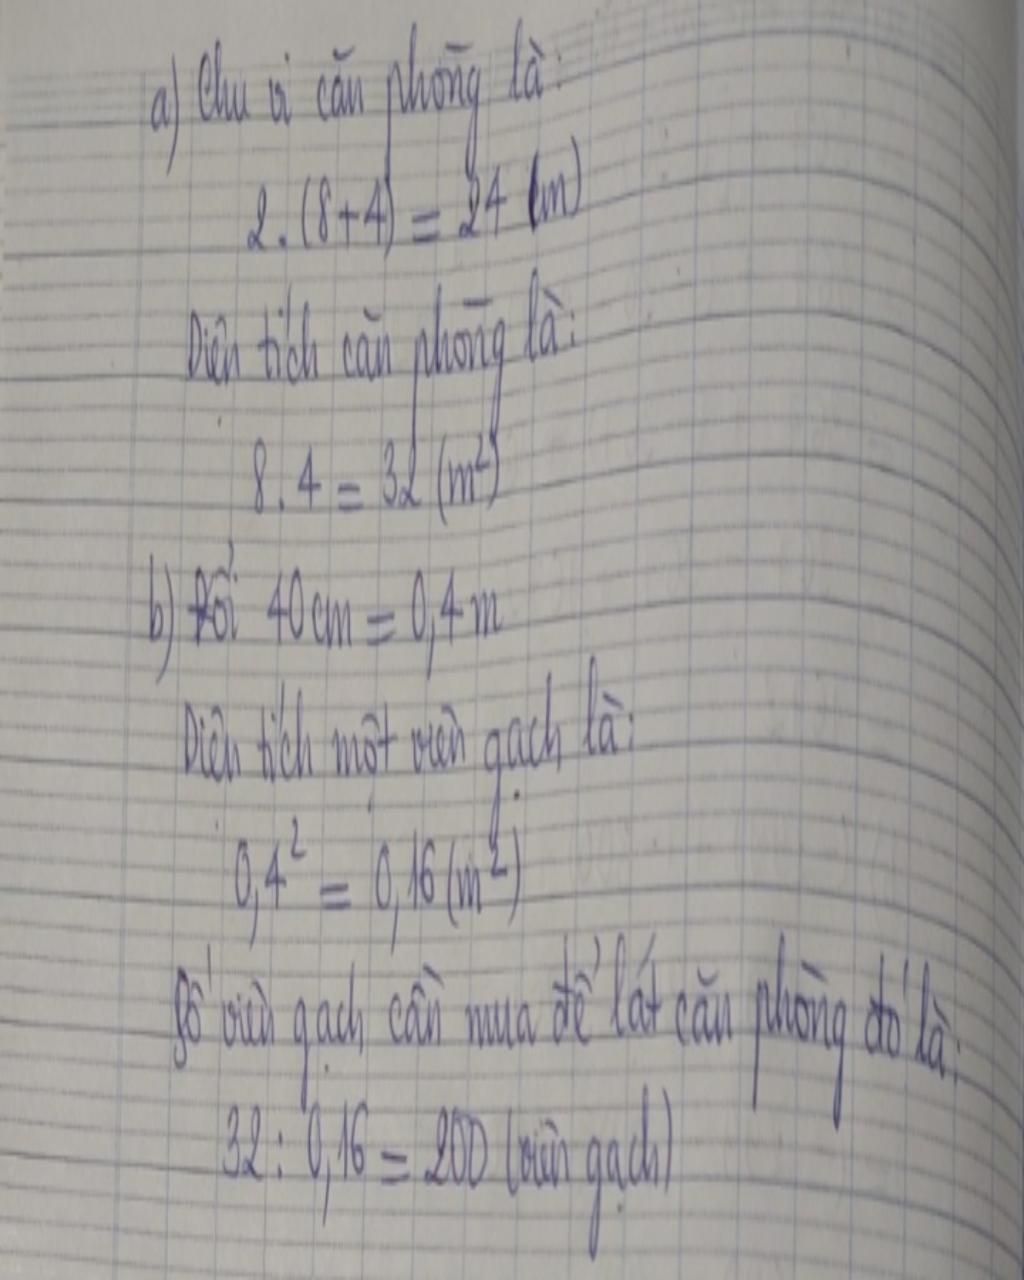 a) Chu vi căn phòng là:
2.(8+4) = 24 (m)
Diện tích căn phòng là:
8.4 = 32 (m²)
b) Đổi 40cm = 0,4m
Diện tích một viên gạch là:
0,4² = 0,16 (m²)
Số viên gạch cần mua để lát căn phòng đó là:
32 : 0,16 = 200 (viên gạch)